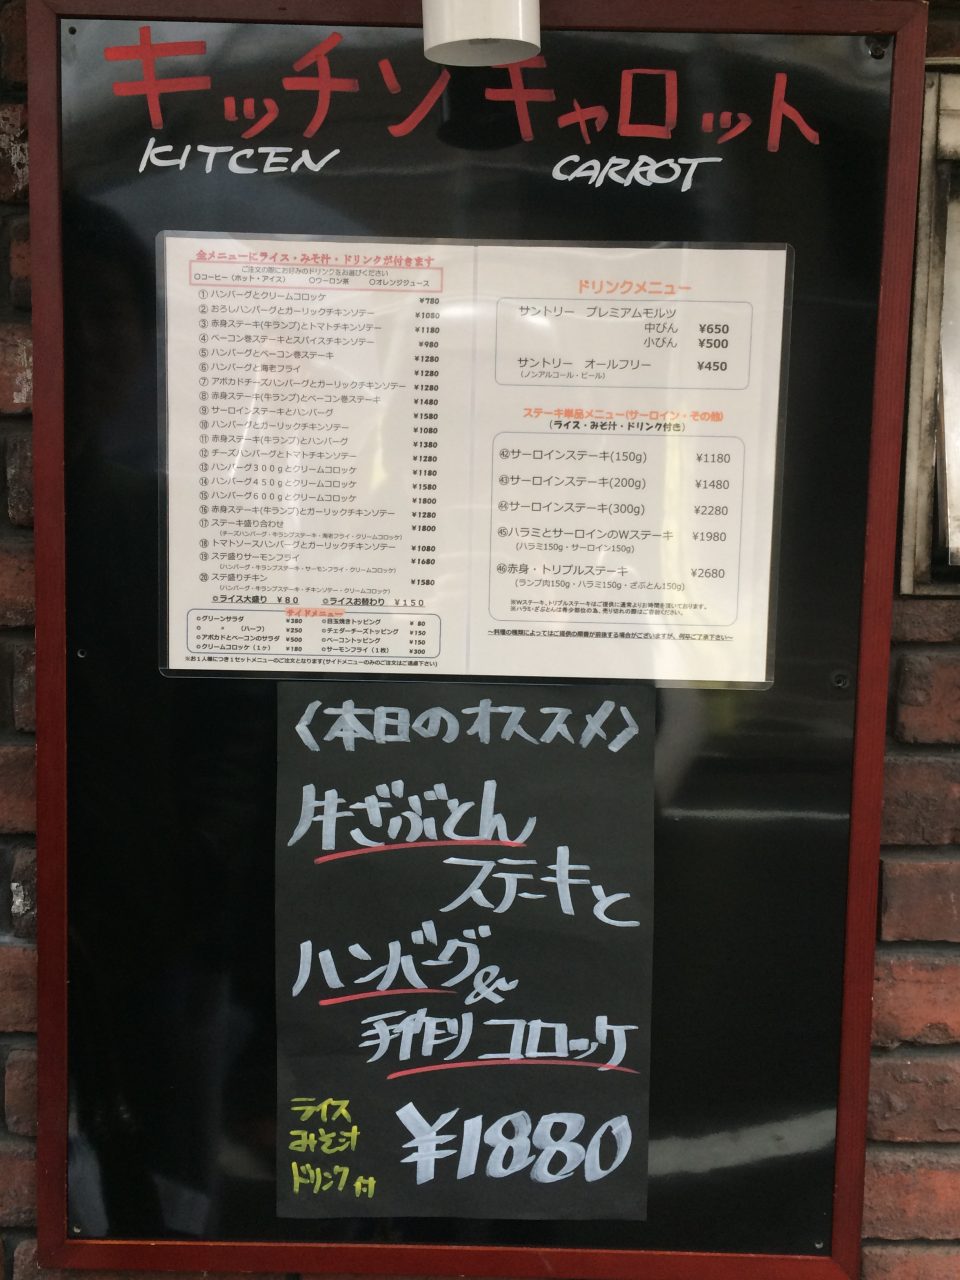 キッチンキャロット
KITCEN CARROT
全メニューにライス・みそ汁・ドリンクが付きます
ご注文の際にお好みのドリンクをお選びください
○コーヒー（ホット・アイス） ○ウーロン茶 ○オレンジジュース
① ハンバーグとクリームコロッケ ¥780
② おろしハンバーグとガーリックチキンソテー ¥1080
③ 赤身ステーキ(牛ランプ)とトマトチキンソテー ¥1180
④ ベーコン巻ステーキとスパイスチキンソテー ¥980
⑤ ハンバーグとベーコン巻ステーキ ¥1280
⑥ ハンバーグと海老フライ ¥1280
⑦ アボカドチーズハンバーグとガーリックチキンソテー ¥1280
⑧ 赤身ステーキ(牛ランプ)とベーコン巻ステーキ ¥1480
⑨ サーロインステーキとハンバーグ ¥1580
⑩ ハンバーグとガーリックチキンソテー ¥1080
⑪ 赤身ステーキ(牛ランプ)とハンバーグ ¥1380
⑫ チーズハンバーグとトマトチキンソテー ¥1280
⑬ ハンバーグ300gとクリームコロッケ ¥1180
⑭ ハンバーグ450gとクリームコロッケ ¥1580
⑮ ハンバーグ600gとクリームコロッケ ¥1800
⑯ 赤身ステーキ(牛ランプ)とガーリックチキンソテー ¥1280
⑰ ステーキ盛り合わせ ¥1800
(チーズハンバーグ・牛ランプステーキ・海老フライ・クリームコロッケ)
⑱ トマトソースハンバーグとガーリックチキンソテー ¥1080
⑲ ステ盛りサーモンフライ ¥1680
(ハンバーグ・牛ランプステーキ・サーモンフライ・クリームコロッケ)
⑳ ステ盛りチキン ¥1580
(ハンバーグ・牛ランプステーキ・チキンソテー・クリームコロッケ)
○ライス大盛り ¥80 ○ライスお替わり ¥150
サイドメニュー
○グリーンサラダ ¥380 ○目玉焼きトッピング ¥80
○ 〃 (ハーフ) ¥250 ○チェダーチーズトッピング ¥150
○アボカドとベーコンのサラダ ¥500 ○ベーコントッピング ¥150
○クリームコロッケ（1ヶ） ¥180 ○サーモンフライ（1枚） ¥300
※お1人様につき1セットメニューのご注文となります(サイドメニューのみのご注文はご遠慮下さい)
ドリンクメニュー
サントリー プレミアムモルツ
中びん ¥650
小びん ¥500
サントリー オールフリー ¥450
(ノンアルコール・ビール)
ステーキ単品メニュー(サーロイン・その他)
(ライス・みそ汁・ドリンク付き)
㊷サーロインステーキ(150g) ¥1180
㊸サーロインステーキ(200g) ¥1480
㊹サーロインステーキ(300g) ¥2280
㊺ハラミとサーロインのWステーキ ¥1980
(ハラミ150g・サーロイン150g)
㊻赤身・トリプルステーキ ¥2680
(ランプ肉150g・ハラミ150g・ざぶとん150g)
※Wステーキ、トリプルステーキはご提供に通常よりお時間を頂いております。
※ハラミ・ざぶとんは希少部位の為、売り切れの際はご容赦ください。
～料理の種類によってはご提供の順番が前後する場合がございますが、何卒ご了承下さい～
〈本日のオススメ〉
牛ざぶとん
ステーキと
ハンバーグ&
手作りコロッケ
ライス
みそ汁
ドリンク付
¥1880